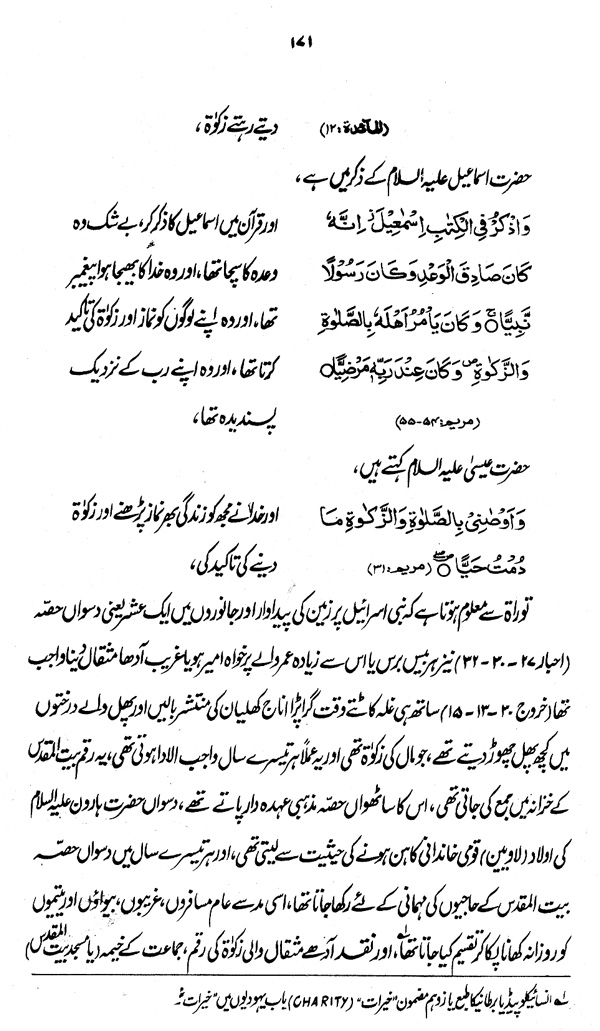 ۱۷۱
(المائدة: ۱۲) دیتے رہتے زکوٰۃ،
حضرت اسماعیل علیہ السلام کے ذکر میں ہے،
وَاذْكُرْ فِي الْكِتٰبِ اِسْمٰعِيْلَ اِنَّهٗ اور قرآن میں اسماعیل کا ذکر کر، بے شک وہ
كَانَ صَادِقَ الْوَعْدِ وَكَانَ رَسُوْلًا وعدہ کا سچا تھا، اور وہ خدا کا بھیجا ہوا پیغمبر
نَّبِيًّا۝ وَكَانَ يَأْمُرُ اَهْلَهٗ بِالصَّلٰوةِ تھا، اور وہ اپنے لوگوں کو نماز اور زکوٰۃ کی تاکید
وَالزَّكٰوةِ وَكَانَ عِنْدَ رَبِّهٖ مَرْضِيًّا۝ کرتا تھا، اور وہ اپنے رب کے نزدیک
(مریم: ۵۴-۵۵) پسندیدہ تھا،
حضرت عیسیٰ علیہ السلام کہتے ہیں،
وَاَوْصٰنِيْ بِالصَّلٰوةِ وَالزَّكٰوةِ مَا اور خدا نے مجھ کو زندگی بھر نماز پڑھنے اور زکوٰۃ
دُمْتُ حَيًّا۝ (مریم: ۳۱) دینے کی تاکید کی،
توراۃ سے معلوم ہوتا ہے کہ بنی اسرائیل پر زمین کی پیداوار اور جانوروں میں ایک عشر یعنی دسواں حصہ
(احبار ۲۷-۳۰-۳۲) نیز ہر بیس برس یا اس سے زیادہ عمر والے پر خواہ امیر ہو یا غریب آدھا مثقال دینا واجب
تھا (خروج ۳۰-۱۳-۱۵) ساتھ ہی غلہ کاٹتے وقت گرا پڑا اناج کھلیان کی منتشر بالیں اور پھل والے درختوں
میں کچھ پھل چھوڑ دیتے تھے، جو مال کی زکوٰۃ تھی اور یہ عملاً ہر تیسرے سال واجب الادا ہوتی تھی، یہ رقم بیت المقدس
کے خزانہ میں جمع کی جاتی تھی، اس کا ساٹھواں حصہ مذہبی عہدہ دار پاتے تھے، دسواں حضرت ہارون علیہ السلام
کی اولاد (لاویین) قومی خاندانی کاہن ہونے کی حیثیت سے لیتی تھی، اور ہر تیسرے سال میں دسواں حصہ
بیت المقدس کے حاجیوں کی مہمانی کے لئے رکھا جاتا تھا، اسی مد سے عام مسافروں، غریبوں، بیواؤں اور یتیموں
کو روزانہ کھانا پکا کر تقسیم کیا جاتا تھا، اور نقد آدھے مثقال والی زکوٰۃ کی رقم، جماعت کے خیمہ (یا مسجد بیت المقدس)
۱ انسائیکلو پیڈیا برطانیکا طبع یازدہم مضمون "خیرات" (CHARITY) باب یہودیوں میں "خیرات"